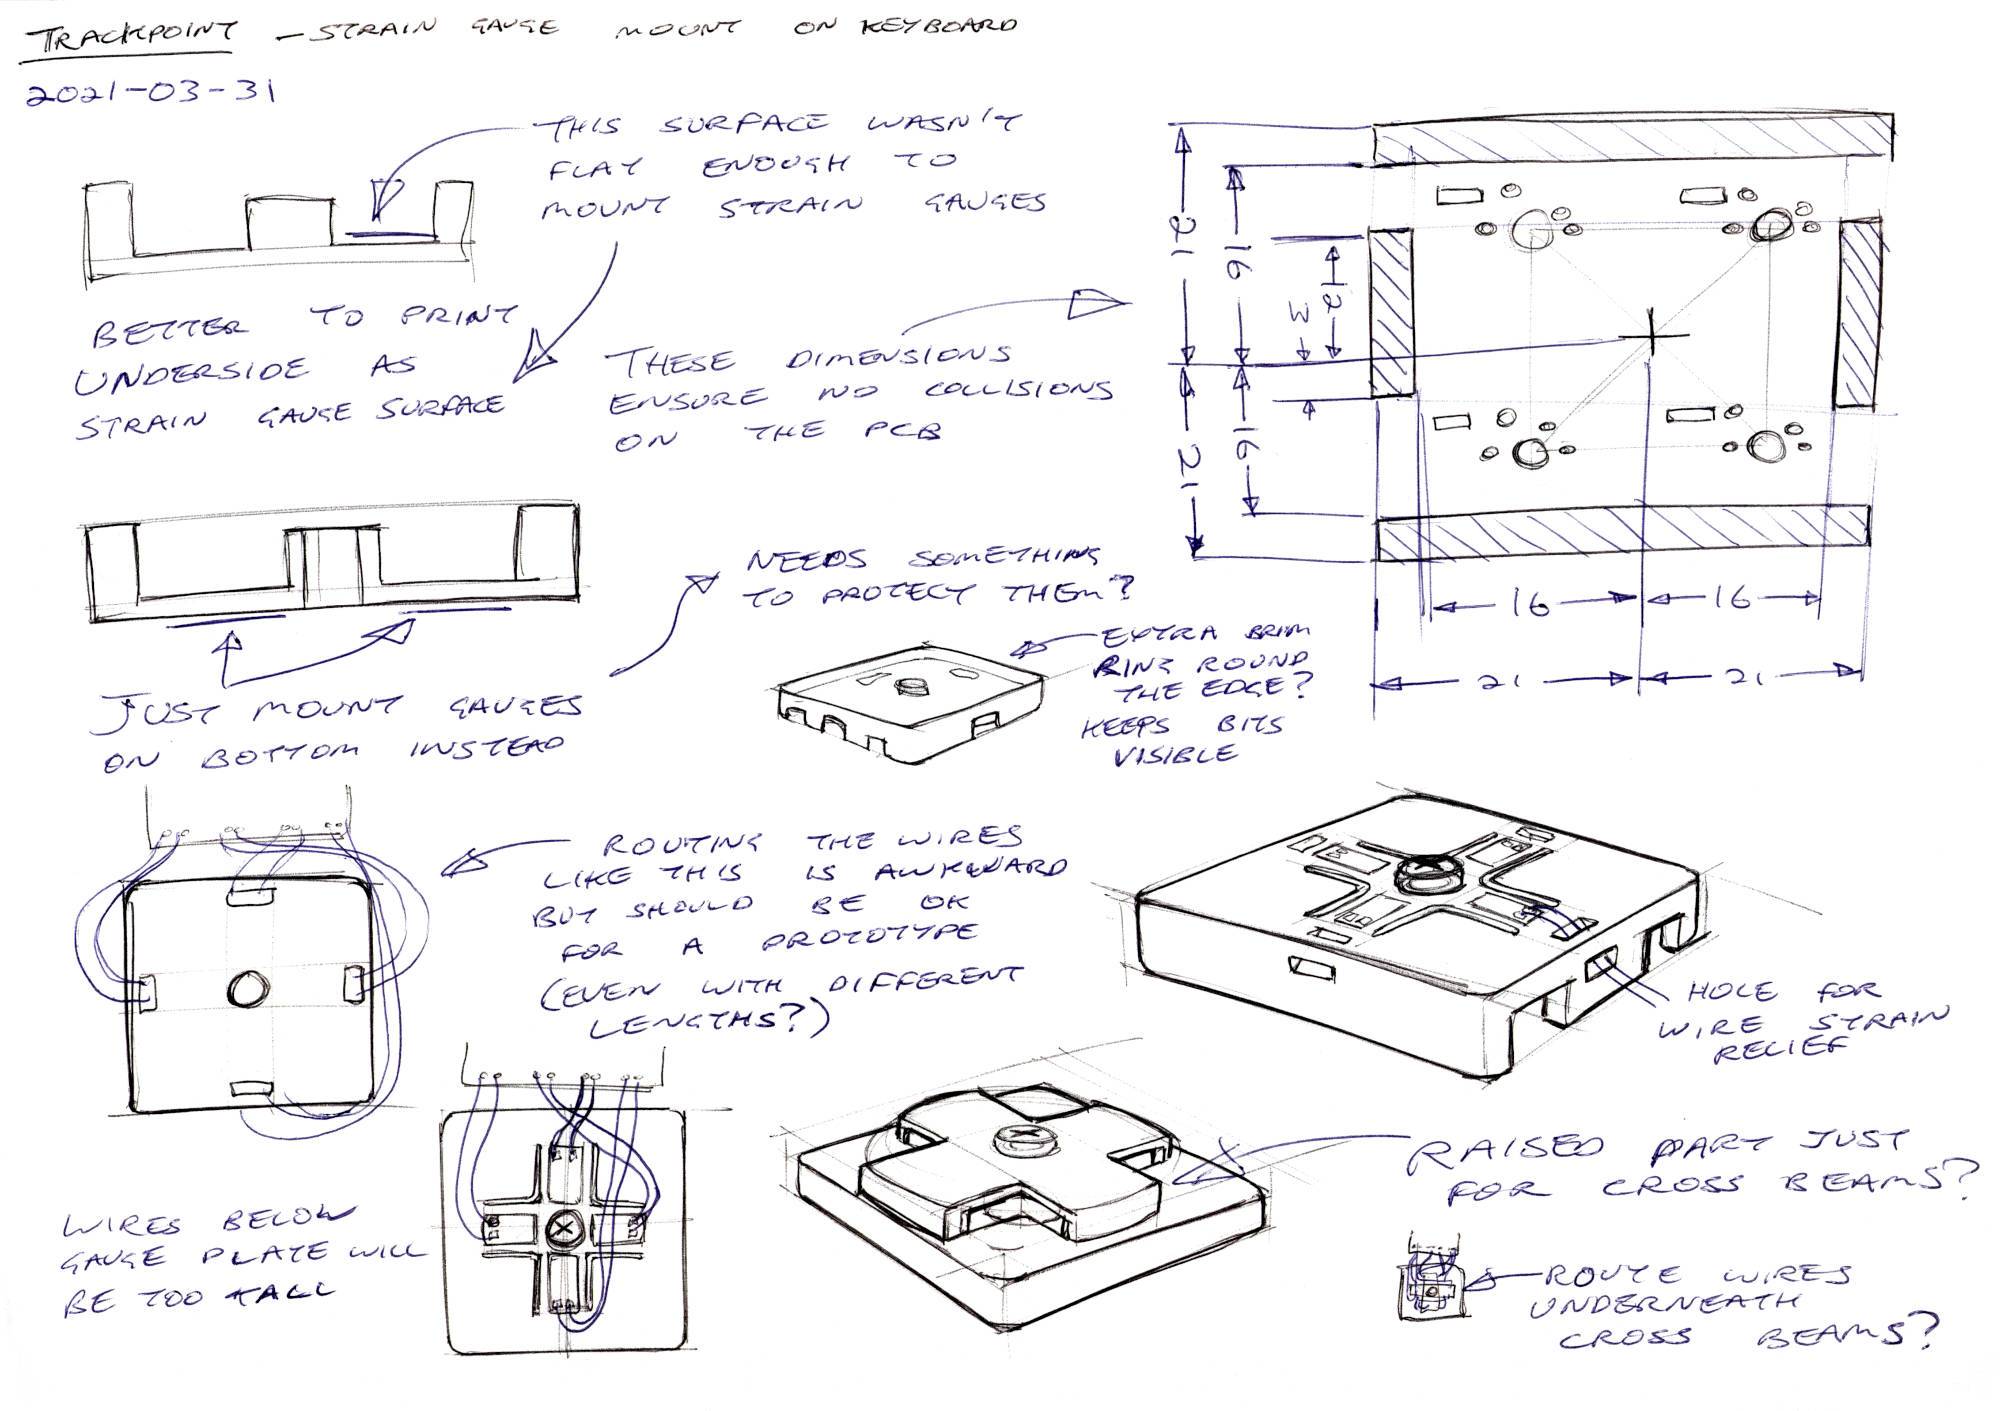 TRACKPOINT – STRAIN GAUGE MOUNT ON KEYBOARD
2021-03-31
THIS SURFACE WASN'T
FLAT ENOUGH TO
MOUNT STRAIN GAUGES
BETTER TO PRINT
UNDERSIDE AS
STRAIN GAUGE SURFACE
THESE DIMENSIONS
ENSURE NO COLLISIONS
ON THE PCB
21
16
12
3
16
21
16
16
21
21
NEEDS SOMETHING
TO PROTECT THEM?
JUST MOUNT GAUGES
ON BOTTOM INSTEAD
EXTRA BRIM
RING ROUND
THE EDGE?
KEEPS BITS
VISIBLE
ROUTING THE WIRES
LIKE THIS IS AWKWARD
BUT SHOULD BE OK
FOR A PROTOTYPE
(EVEN WITH DIFFERENT
LENGTHS?)
HOLE FOR
WIRE STRAIN
RELIEF
WIRES BELOW
GAUGE PLATE WILL
BE TOO TALL
RAISED PART JUST
FOR CROSS BEAMS?
ROUTE WIRES
UNDERNEATH
CROSS BEAMS?